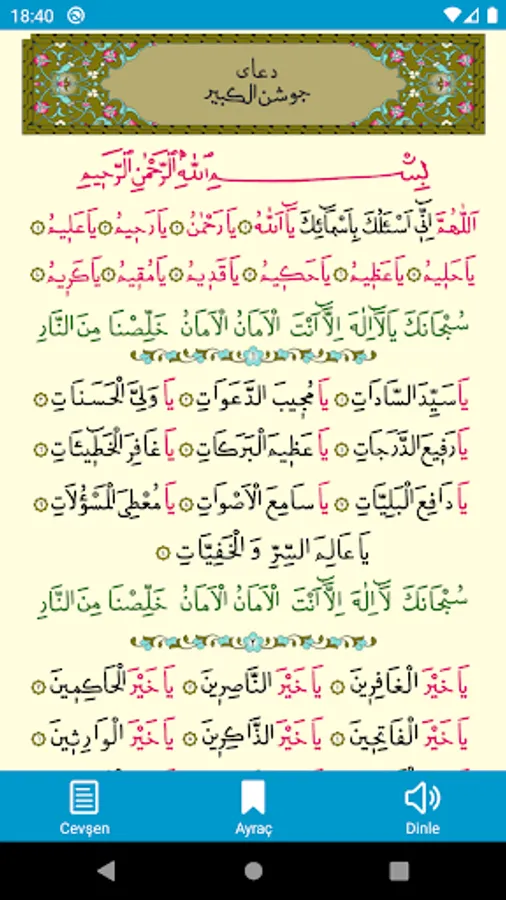 18:40
دعاى
جوشن الكبير
بِسْــــــمِ اللهِ الرَّحْمٰنِ الرَّحِيمِ
اَللّٰهُمَّ اِنِّى اَسْئَلُكَ بِاَسْمَائِكَ يَا اَللهُ يَا رَحْمٰنُ يَا رَحِيمُ يَا عَلِيمُ
يَا حَلِيمُ يَا عَظِيمُ يَا حَكِيمُ يَا قَدِيمُ يَا مُقِيمُ يَا كَرِيمُ
سُبْحَانَكَ يَا لَا اِلٰهَ اِلَّا اَنْتَ الْاَمَانُ الْاَمَانُ خَلِّصْنَا مِنَ النَّارِ
١
يَا سَيِّدَ السَّادَاتِ يَا مُجِيبَ الدَّعَوَاتِ يَا وَلِىَّ الْحَسَنَاتِ
يَا رَفِيعَ الدَّرَجَاتِ يَا عَظِيمَ الْبَرَكَاتِ يَا غَافِرَ الْخَطِيئَاتِ
يَا دَافِعَ الْبَلِيَّاتِ يَا سَامِعَ الْاَصْوَاتِ يَا مُعْطِىَ الْمَسْؤُلَاتِ
يَا عَالِمَ السِّرِّ وَ الْخَفِيَّاتِ
سُبْحَانَكَ لَا اِلٰهَ اِلَّا اَنْتَ الْاَمَانُ الْاَمَانُ خَلِّصْنَا مِنَ النَّارِ
٢
يَا خَيْرَ الْغَافِرِينَ يَا خَيْرَ النَّاصِرِينَ يَا خَيْرَ الْحَاكِمِينَ
يَا خَيْرَ الْفَاتِحِينَ يَا خَيْرَ الذَّاكِرِينَ يَا خَيْرَ الْوَارِثِينَ
Cevşen Ayraç Dinle